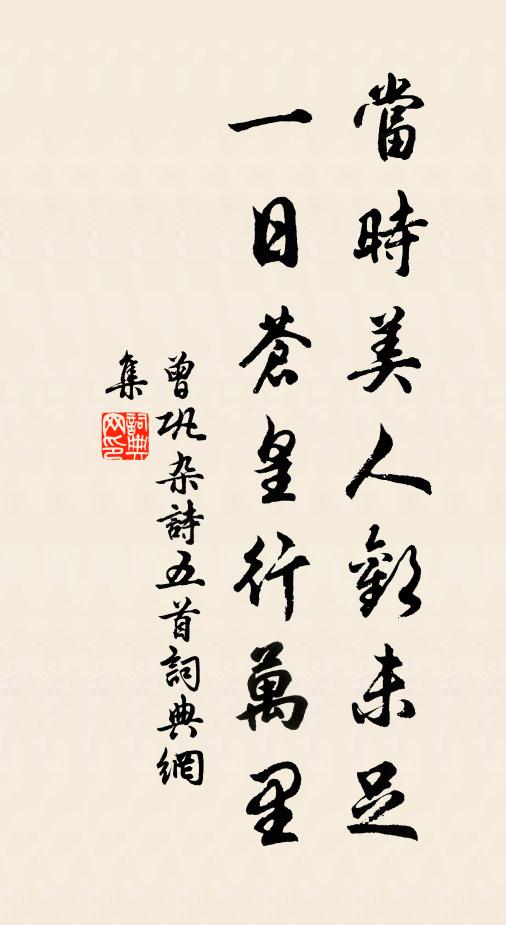 當時美人歡未足
一日蒼皇行萬里
曾巩杂詩五首詞典網
集
詞典
网印